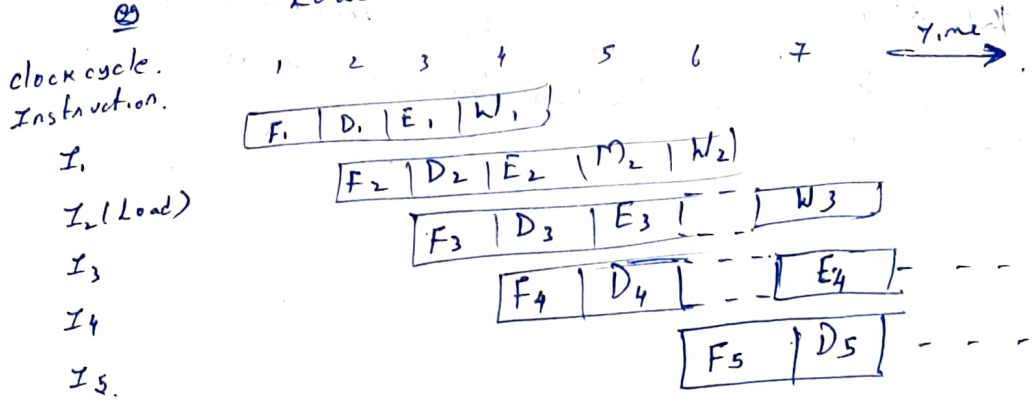 Q9
clock cycle. 1 2 3 4 5 6 7 Time
Instruction.
I₁ F₁ D₁ E₁ W₁
I₂ (Load) F₂ D₂ E₂ M₂ W₂
I₃ F₃ D₃ E₃ W₃
I₄ F₄ D₄ E₄
I₅. F₅ D₅